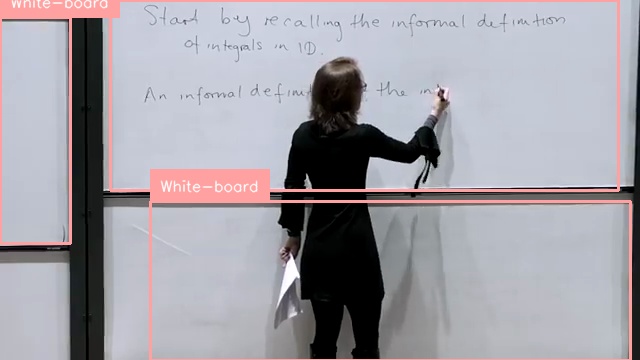 White-board
Start by recalling the informal definition
of integrals in 1D.
An informal the
White-board